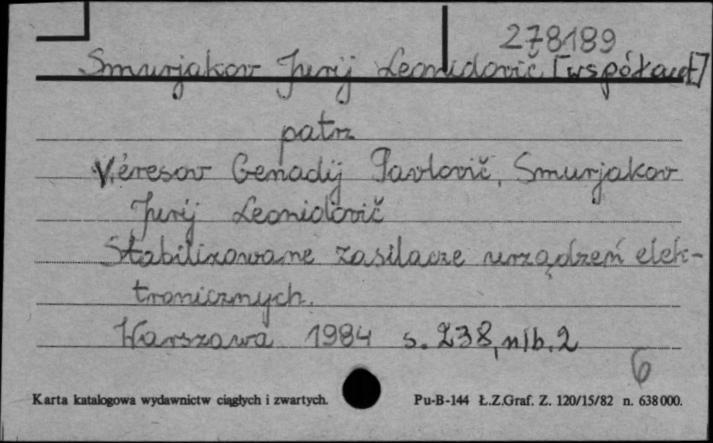 278189
Smurjakov Jurij Leonidovič [współaut]
patrz
Véresov Genadij Pavlovič, Smurjakov
Jurij Leonidovič
Stabilizowane zasilacze urządzeń elek-
tronicznych.
Warszawa 1984 s. 238, nlb. 2
6
Karta katalogowa wydawnictw ciągłych i zwartych.
Pu-B-144 Ł.Z.Graf. Z. 120/15/82 n. 638000.